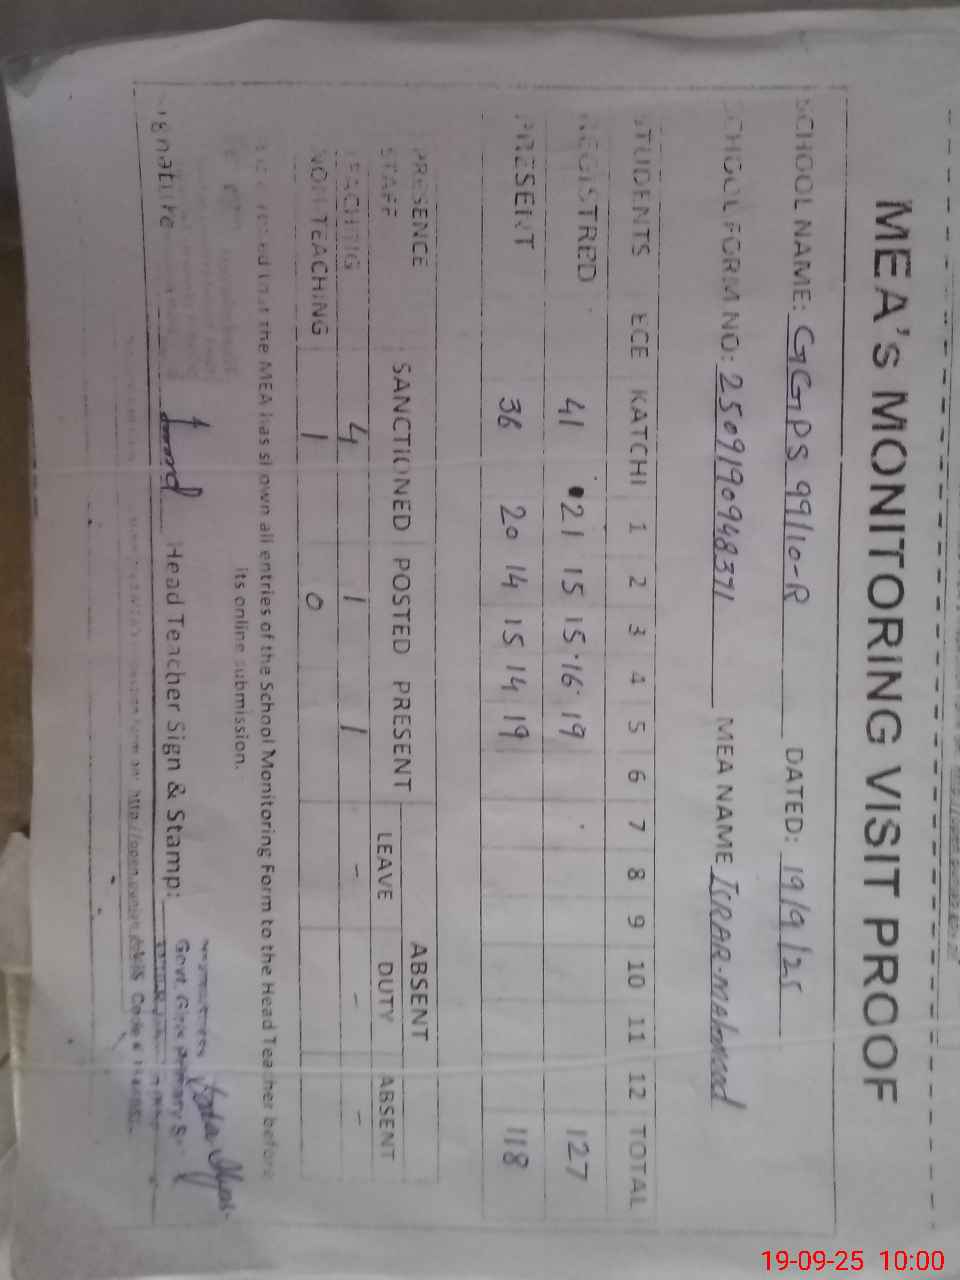 MEA's MONITORING VISIT PROOF
SCHOOL NAME: GGPS 99/10-R DATED: 19/9/25
SCHOOL FORM NO: 2509190948371 MEA NAME ISRAR-Mahmood
STUDENTS ECE KATCHI 1 2 3 4 5 6 7 8 9 10 11 12 TOTAL
REGISTRED 41 21 15 15 16 19 127
PRESENT 36 20 14 15 14 19 118
PRESENCE ABSENT
STAFF SANCTIONED POSTED PRESENT LEAVE DUTY ABSENT
TEACHING 4 1 1 - - -
NON TEACHING 1 0
that the MEA has shown all entries of the School Monitoring Form to the Head Teacher before
its online submission.
Signature Head Teacher Sign & Stamp:
Govt. Girls Primary S
19-09-25 10:00